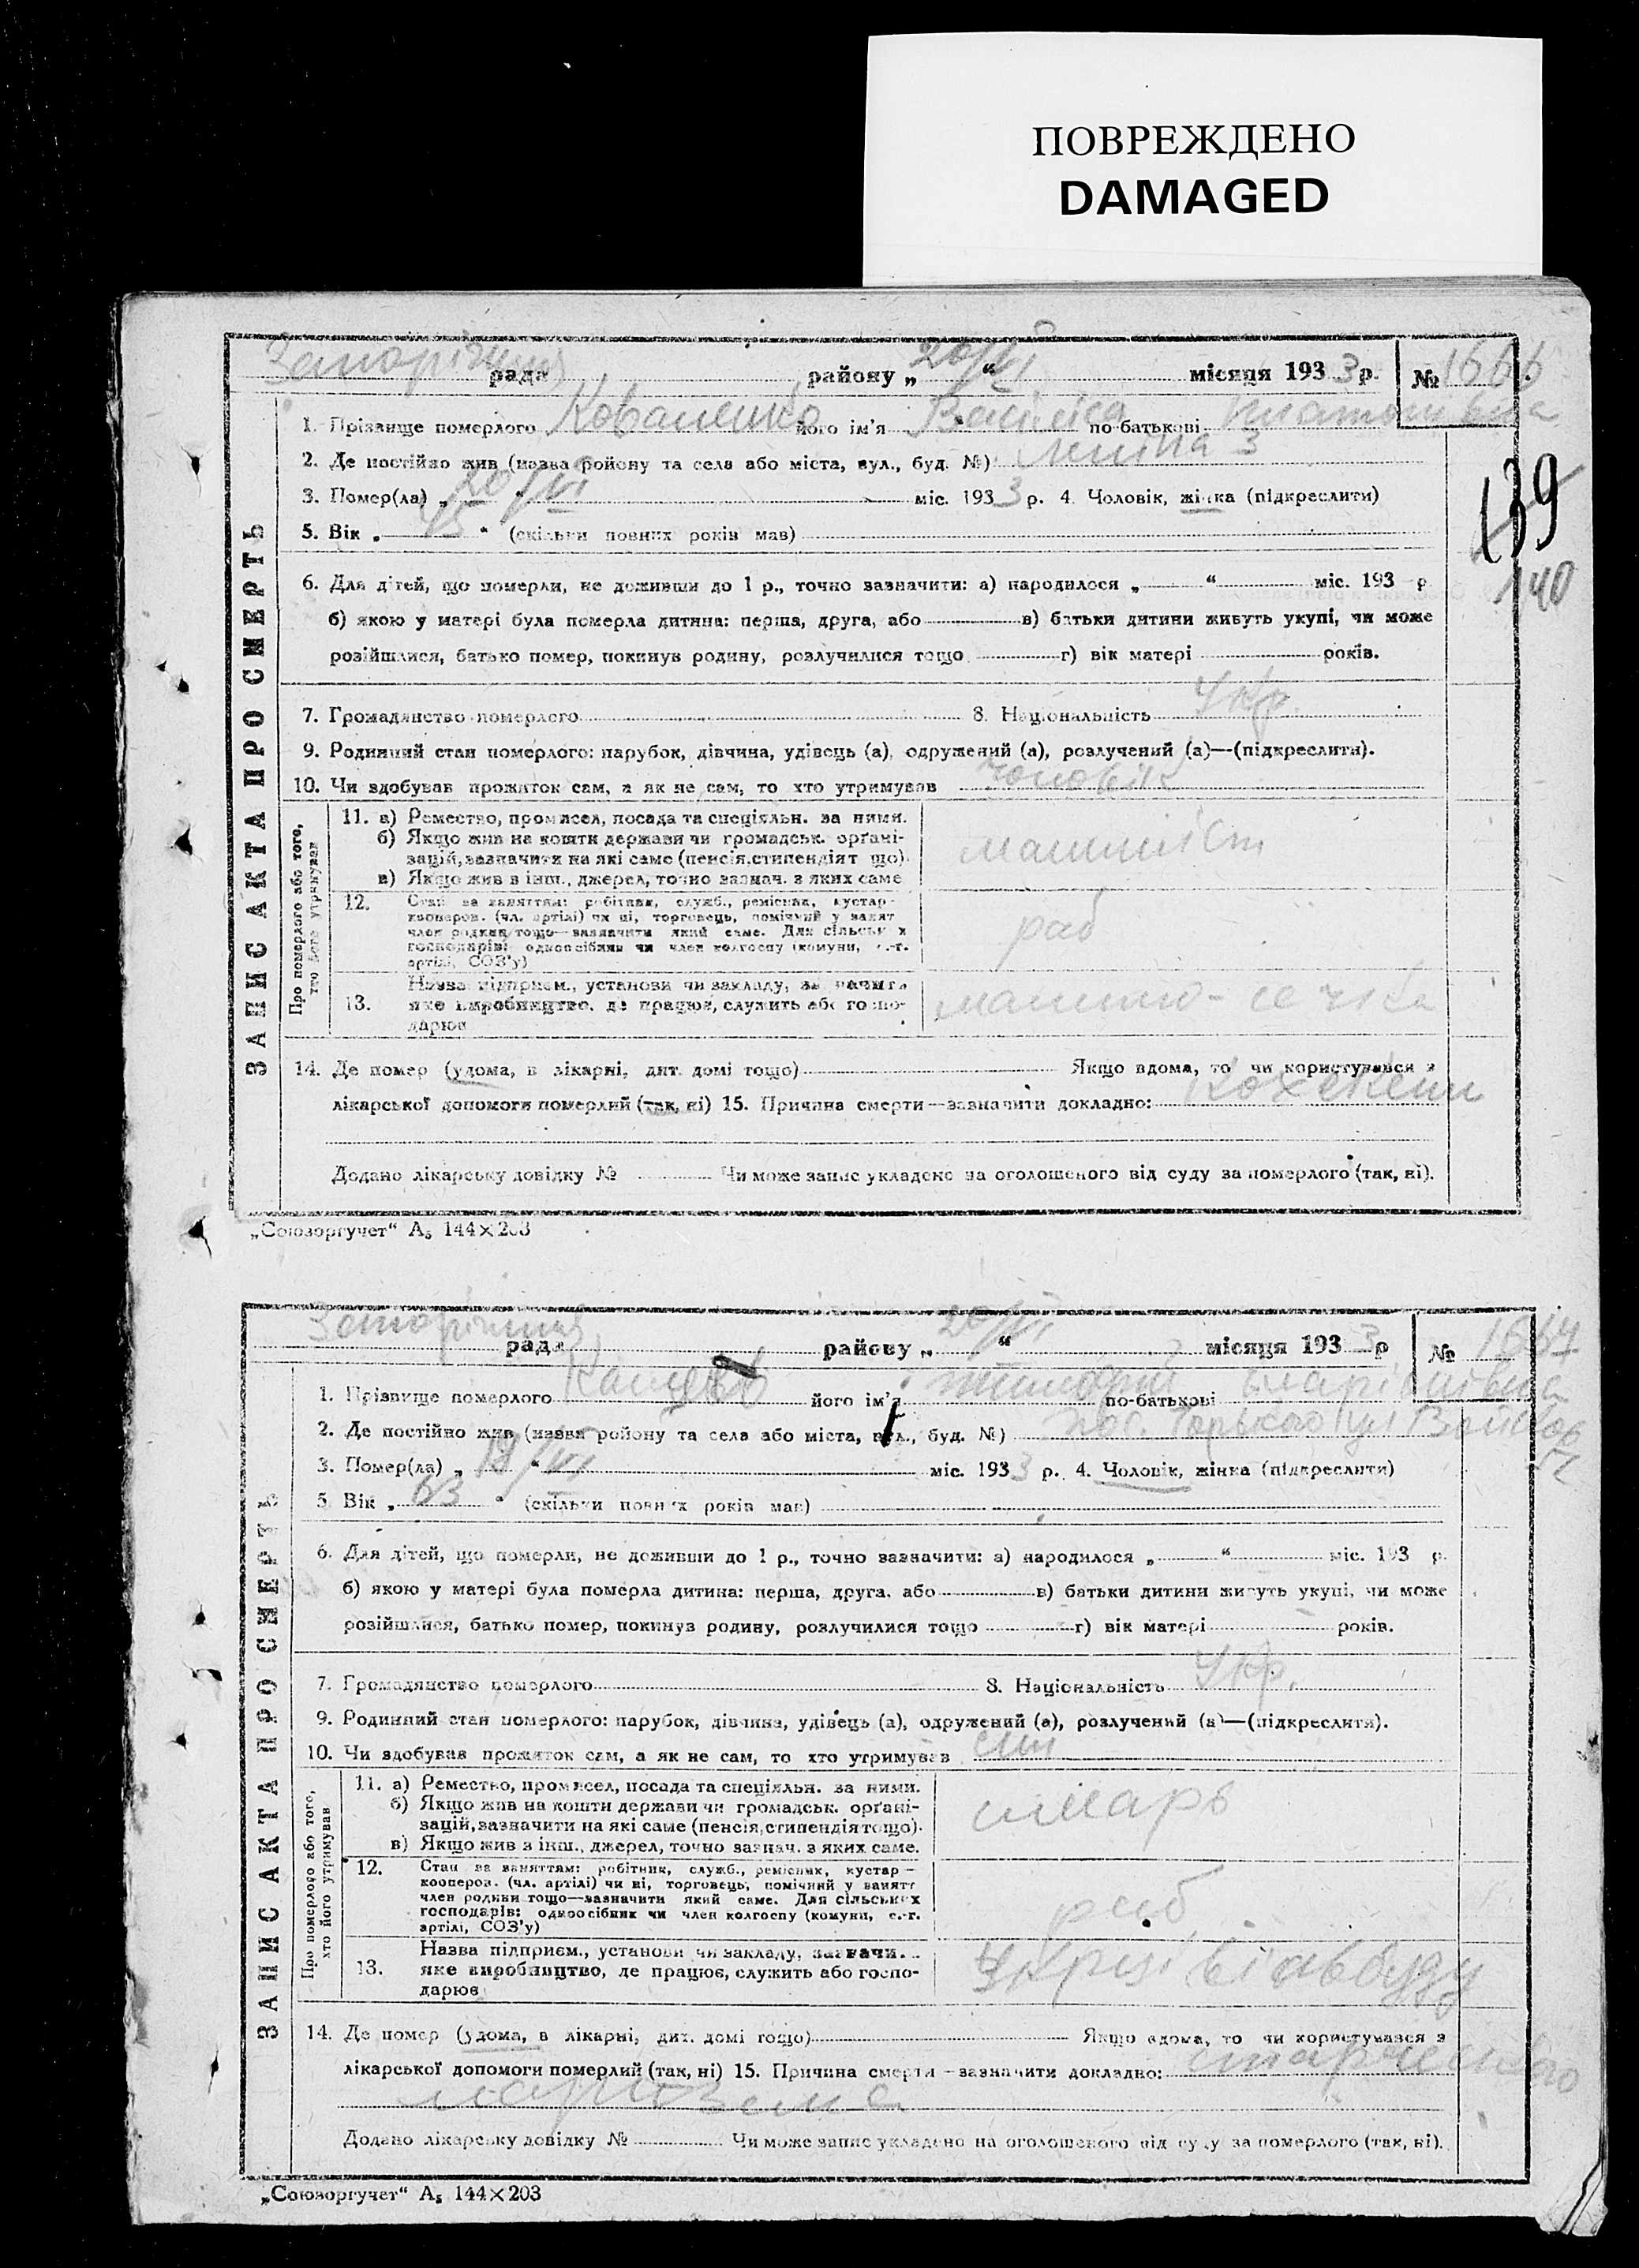 ПОВРЕЖДЕНО
DAMAGED
Запорізька рада району „20/VI“ місяця 1933 р. № 1666
1. Прізвище померлого Коваленко його ім'я по-батькові
2. Де постійно жив (назва ройону та села або міста, вул., буд. №) Леніна 3
3. Помер(ла) „20/VI“ міс. 1933 р. 4. Чоловік, жінка (підкреслити)
5. Вік „45“ (скільки повних років мав)
139
140
6. Для дітей, що померли, не доживши до 1 р., точно зазначити: а) народилося „ “ міс. 193 р
б) якою у матері була померла дитина: перша, друга, або в) батьки дитини живуть укупі, чи може
розійшлися, батько помер, покинув родину, розлучилися тощо г) вік матері років.
7. Громадянство померлого 8. Національність Укр.
9. Родинний стан померлого: парубок, дівчина, удівець (а), одружений (а), розлучений (а)—(підкреслити).
10. Чи здобував прожиток сам, а як не сам, то хто утримував чоловік
ЗАПИС АКТА ПРО СМЕРТЬ
Про померлого або того,
хто його утримував
11. а) Ремество, промисел, посада та спеціяльн. за ними.
б) Якщо жив на кошти держави чи громадськ. органі-
зацій, зазначити на які саме (пенсія, стипендія т що).
в) Якщо жив з інш., джерел, точно зазнач. з яких саме
машиніст
12. Стан за заняттям: робітник, служб., ремісник, кустар-
кооперов. (чл. артілі) чи ні, торговець, помічний у занят
член родини тощо—зазначити який саме. Для сільськ х
господарів: одноосібник чи член колгоспу (комуни, с.-г.
артілі, СОЗ'у)
раб
13. Назва підприєм., установи чи закладу, зазначить
яке виробництво, де працює, служить або госпо-
дарює
14. Де помер (удома, в лікарні, дит. домі тощо) Якщо вдома, то чи користувався з
лікарської допомоги померлий (так, ні) 15. Причина смерти—зазначити докладно:
Додано лікарську довідку № Чи може запис укладено на оголошеного від суду за померлого (так, ні).
„Союзоргучет“ А₅ 144×203
Запорізька рада району „20/VI“ місяця 1933 р № 1667
1. Прізвище померлого його ім'я по-батькові
2. Де постійно жив (назва ройону та села або міста, вул., буд. №) пос. Горького вул
3. Помер(ла) „19/VI“ міс. 1933 р. 4. Чоловік, жінка (підкреслити)
5. Вік „63“ (скільки повних років мав)
6. Для дітей, що померли, не доживши до 1 р., точно зазначити: а) народилося „ “ міс. 193 р.
б) якою у матері була померла дитина: перша, друга, або в) батьки дитини живуть укупі, чи може
розійшлися, батько помер, покинув родину, розлучилися тощо г) вік матері років.
7. Громадянство померлого 8. Національність Укр.
9. Родинний стан померлого: парубок, дівчина, удівець (а), одружений (а), розлучений (а)—(підкреслити).
10. Чи здобував прожиток сам, а як не сам, то хто утримував
ЗАПИС АКТА ПРО СМЕРТЬ
Про померлого або того,
хто його утримував
11. а) Ремество, промисел, посада та спеціяльн. за ними.
б) Якщо жив на кошти держави чи громадськ. органі-
зацій, зазначити на які саме (пенсія, стипендія тощо).
в) Якщо жив з інш., джерел, точно зазнач. з яких саме.
12. Стан за заняттям: робітник, служб., ремісник, кустар—
кооперов. (чл. артілі) чи ні, торговець, помічний у занятт
член родини тощо—зазначити який саме. Для сільських
господарів: одноосібник чи член колгоспу (комуни, с.-г.
артілі, СОЗ'у)
раб
13. Назва підприєм., установи чи закладу, зазначи.
яке виробництво, де працює, служить або госпо-
дарює
14. Де помер (удома, в лікарні, дит. домі тощо) Якщо вдома, то чи користувався з
лікарської допомоги померлий (так, ні) 15. Причина смерти—зазначити докладно: старческого
маразма
Додано лікарську довідку № Чи може запис укладено на оголошеного від суду за померлого (так, ні).
„Союзоргучет“ А₅ 144×203